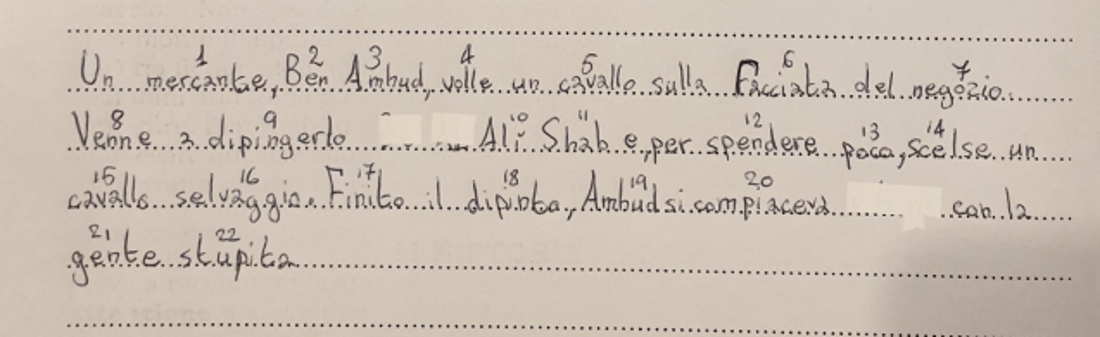 1 2 3 4 5 6 7
Un mercante, Ben Ambud, volle un cavallo sulla Facciata del negozio.
8 9 10 11 12 13 14
Venne a dipingerlo Alì Shab e, per spendere poco, scelse un
15 16 17 18 19 20
cavallo selvaggio. Finito il dipinto, Ambud si compiaceva con la
21 22
gente stupita